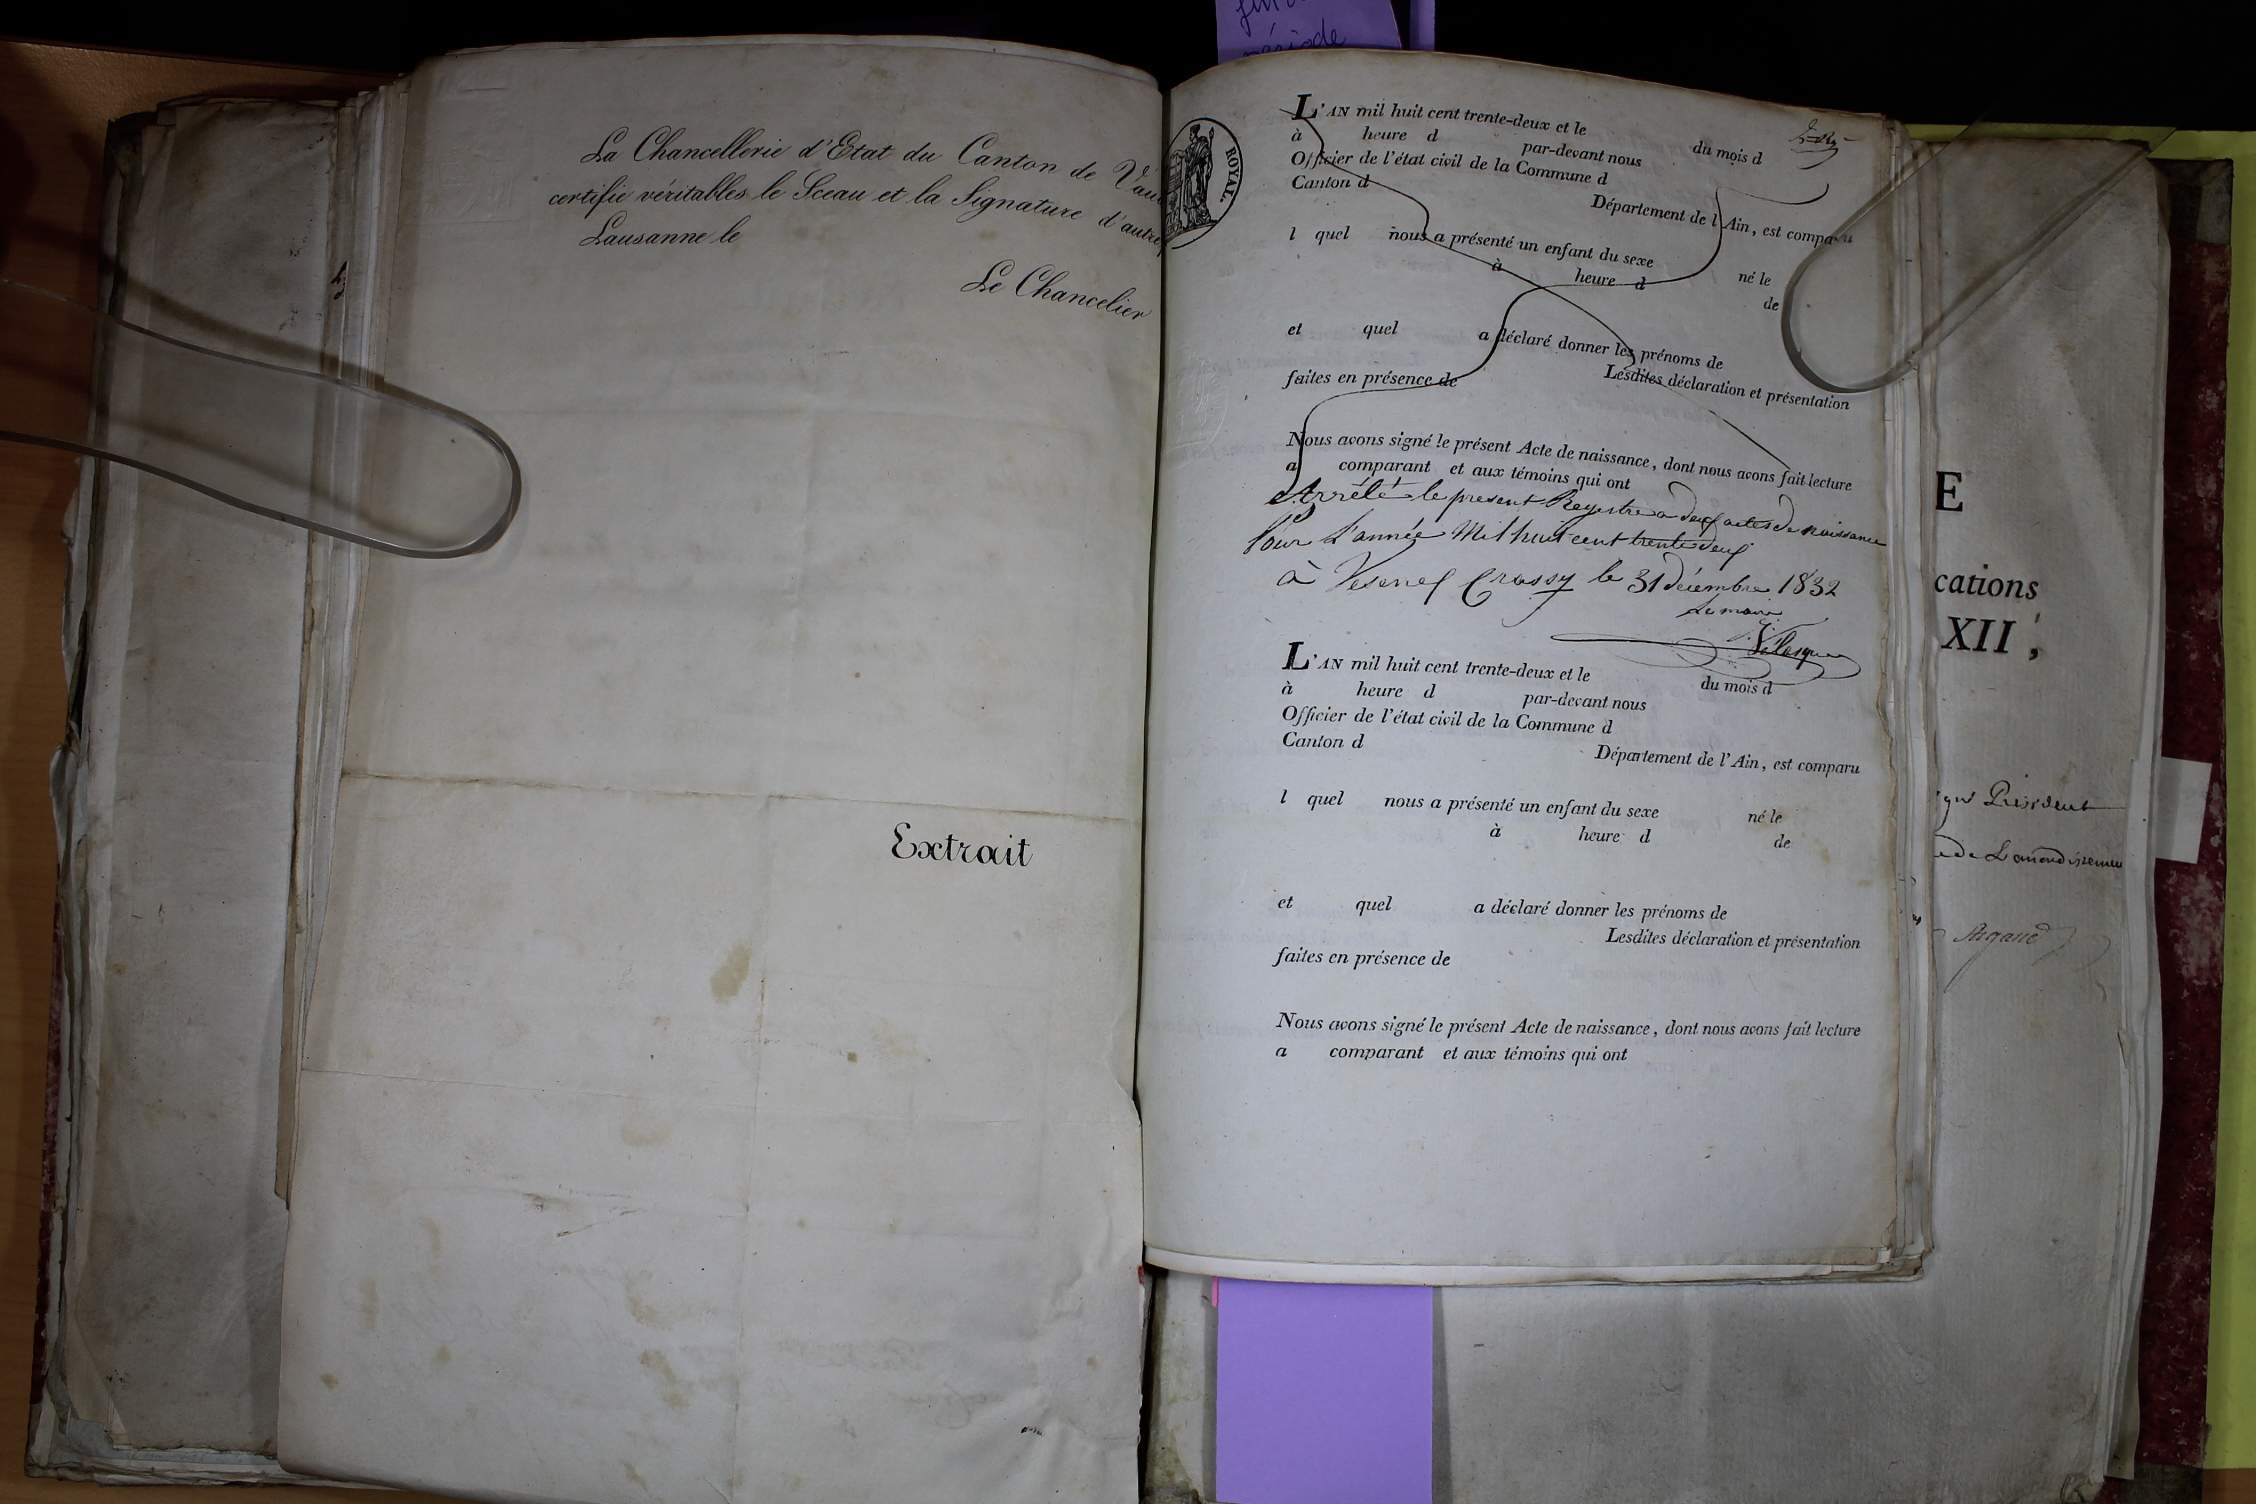 La Chancellerie d'Etat du Canton de Vau
certifie véritables le Sceau et la Signature d'autre
Lausanne le
Le Chancelier
Extrait
période
ROYAL.
L'AN mil huit cent trente-deux et le du mois d
à heure d par-devant nous
Officier de l'état civil de la Commune d
Canton d Département de l'Ain, est comparu
l quel nous a présenté un enfant du sexe né le
à heure d de
et quel a déclaré donner les prénoms de
Lesdites déclaration et présentation
faites en présence de
Nous avons signé le présent Acte de naissance, dont nous avons fait lecture
a comparant et aux témoins qui ont
Arrêté le present Registre a deux actes de naissance
Pour L'année Mil huit cent trente deux
à Vesenex Crassy le 31 décembre 1832
Le maire
L'AN mil huit cent trente-deux et le du mois d
à heure d par-devant nous
Officier de l'état civil de la Commune d
Canton d Département de l'Ain, est comparu
l quel nous a présenté un enfant du sexe né le
à heure d de
et quel a déclaré donner les prénoms de
Lesdites déclaration et présentation
faites en présence de
Nous avons signé le présent Acte de naissance, dont nous avons fait lecture
a comparant et aux témoins qui ont
E
cations
XII ;
Président